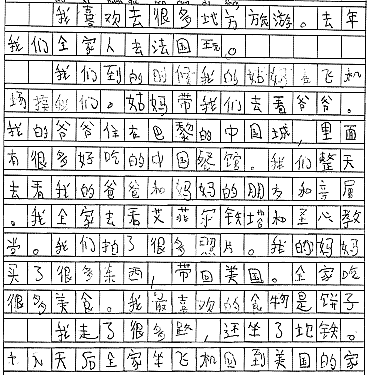 我喜欢去很多地方旅游。去年
我们全家人去法国玩。
我们到的时候我的姑妈在飞机
场接我们。姑妈带我们去看爷爷。
我的爷爷住在巴黎的中国城，里面
有很多好吃的中国餐馆。我们整天
去看我的爸爸和妈妈的朋友和亲属
。我全家去看艾菲尔铁塔和圣心教
堂。我们拍了很多照片。我的妈妈
买了很多东西，带回美国。全家吃
很多美食。我最喜欢的食物是饼子
我走了很多路，还坐了地铁。
十八天后全家坐飞机回到美国的家